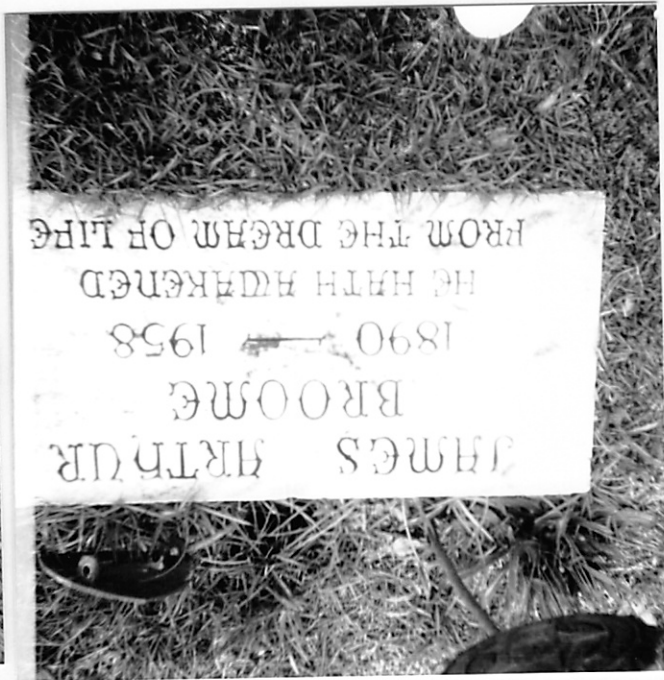 JAMES ARTHUR
BROOME
1890 — 1958
HE HATH AWAKENED
FROM THE DREAM OF LIFE